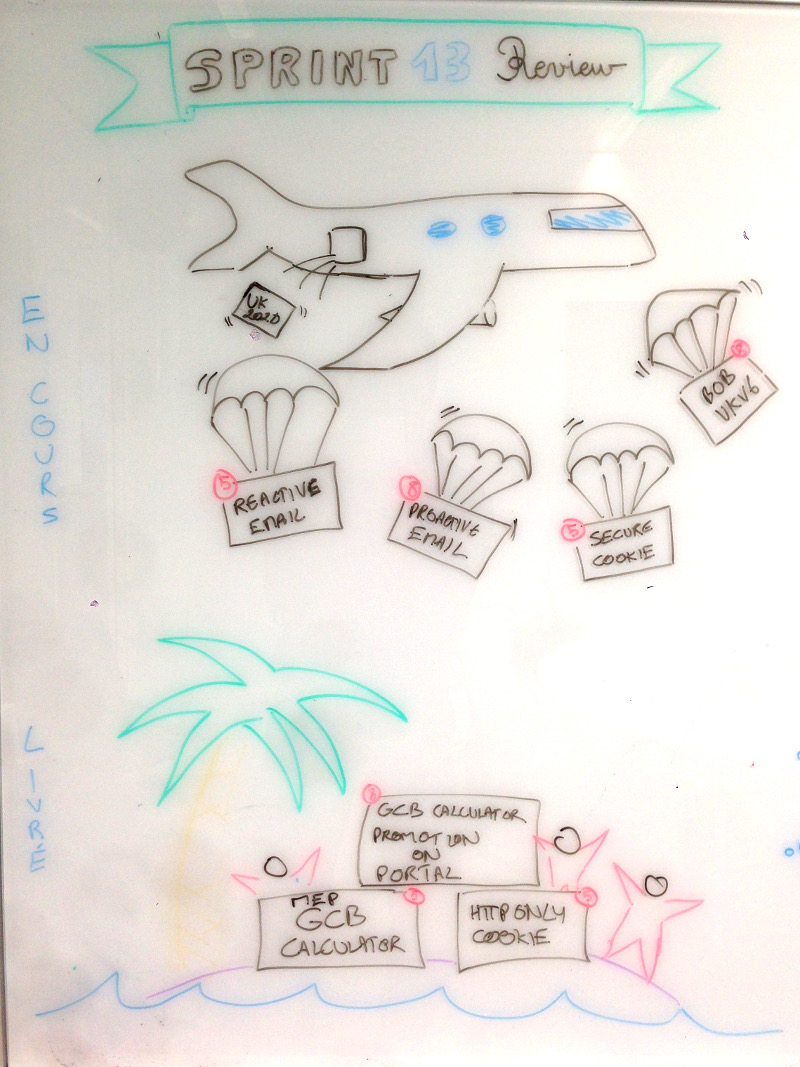 SPRINT 13 Review
EN COURS
UK
2020
BOB
UKV6
5
REACTIVE
EMAIL
8
PROACTIVE
EMAIL
5
SECURE
COOKIE
LIVRE
8
GCB CALCULATOR
PROMOTION
ON
PORTAL
MEP
GCB
CALCULATOR
HTTP ONLY
COOKIE